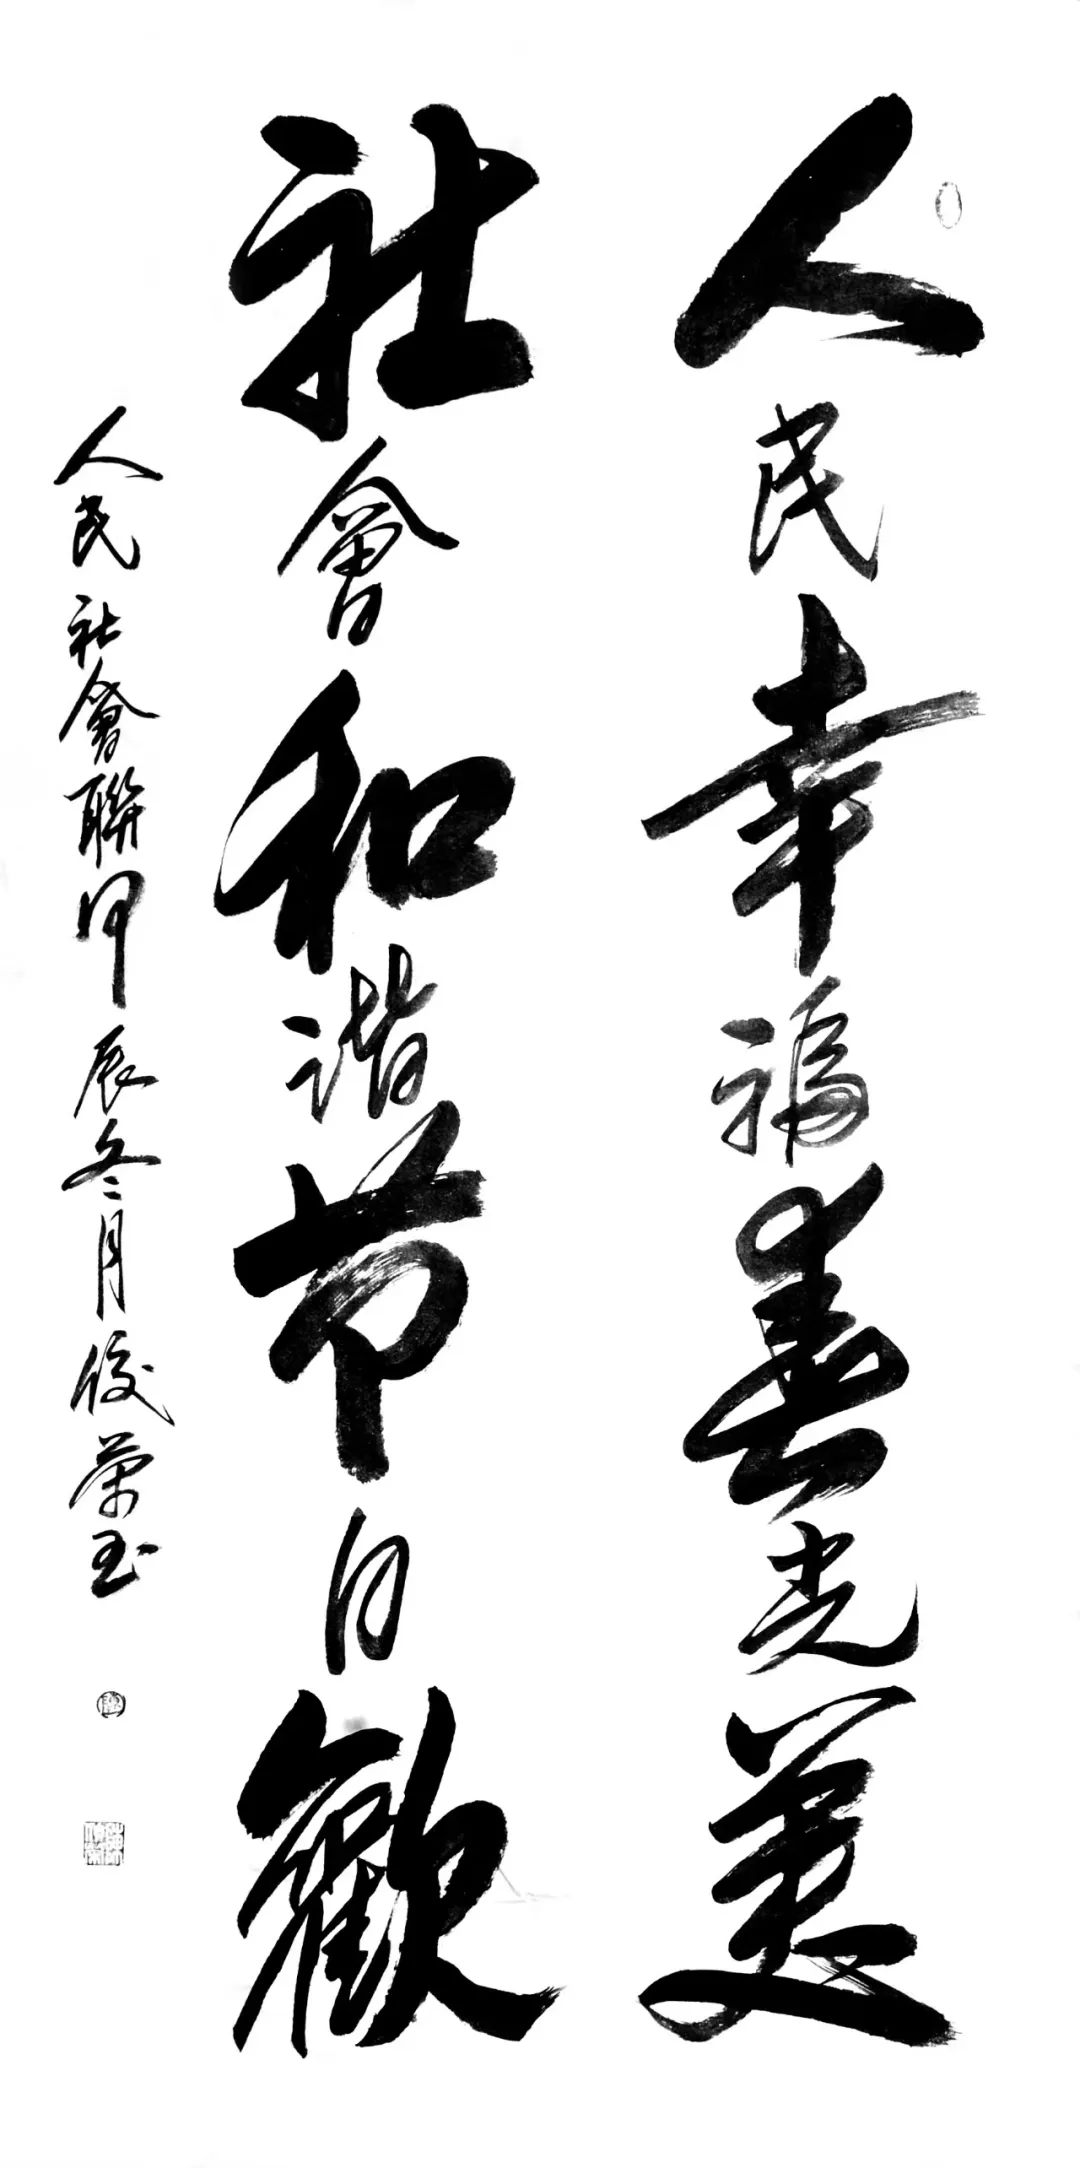 人民幸福春光美
社會和谐节日歡
人民社會聯甲辰冬月俊榮玉